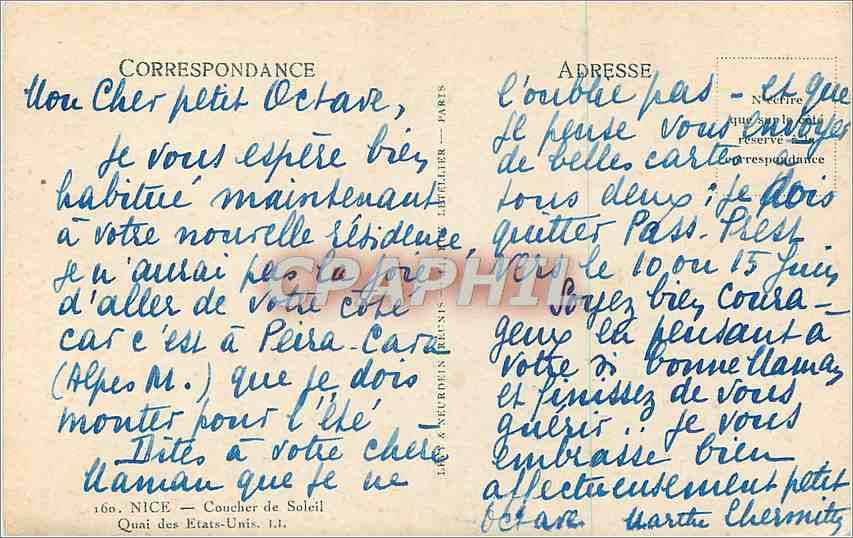 CORRESPONDANCE
Mon Cher petit Octave,
Je vous espère bien
habitué maintenant
à votre nouvelle résidence,
je n'aurai pas la joie
d'aller de votre côté
car c'est à Peïra-Cava
(Alpes M.) que je dois
monter pour l'été
Dites à votre chère
Maman que je ne
160. NICE — Coucher de Soleil
Quai des Etats-Unis. LL.
LEVY & NEURDEIN REUNIS LETELLIER — PARIS
ADRESSE
N'écrire
que sur le côté
réservé à la
correspondance
l'oublie pas - et que
je pense vous envoyer
de belles cartes à
tous deux; je dois
quitter Pass-Prest
vers le 10 ou 15 Juin
Soyez bien coura-
geux en pensant à
votre si bonne Maman
et finissez de vous
guérir.. je vous
embrasse bien
affectueusement petit
Octave. Marthe
CPARHII